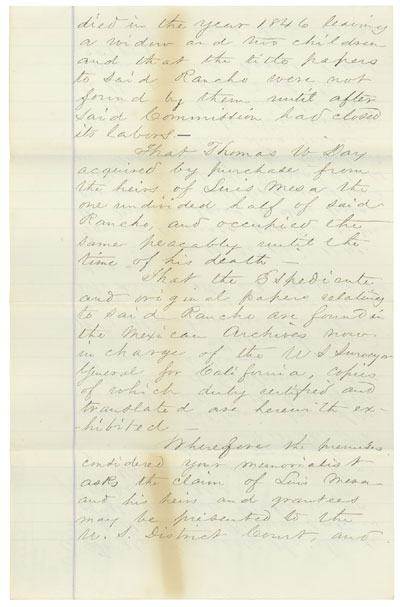 died in the year 1846 leaving
a widow and two children
and that the title papers
to said Rancho were not
found by them until after
said Commission had closed
its labors —
That Thomas W Day
acquired by purchase from
the heirs of Luis Mesa the
one undivided half of said
Rancho, and occupied the
same peacably until the
time of his death —
That the Espediente
and original papers relating
to said Rancho are found in
the Mexican Archives now
in charge of the U S Surveyor
General for California, copies
of which duly certified and
translated are herewith ex-
hibited —
Wherefore the premises
considered your memorialist
asks the claim of Luis Mesa
and his heirs and grantees
may be presented to the
U. S. District Court, and